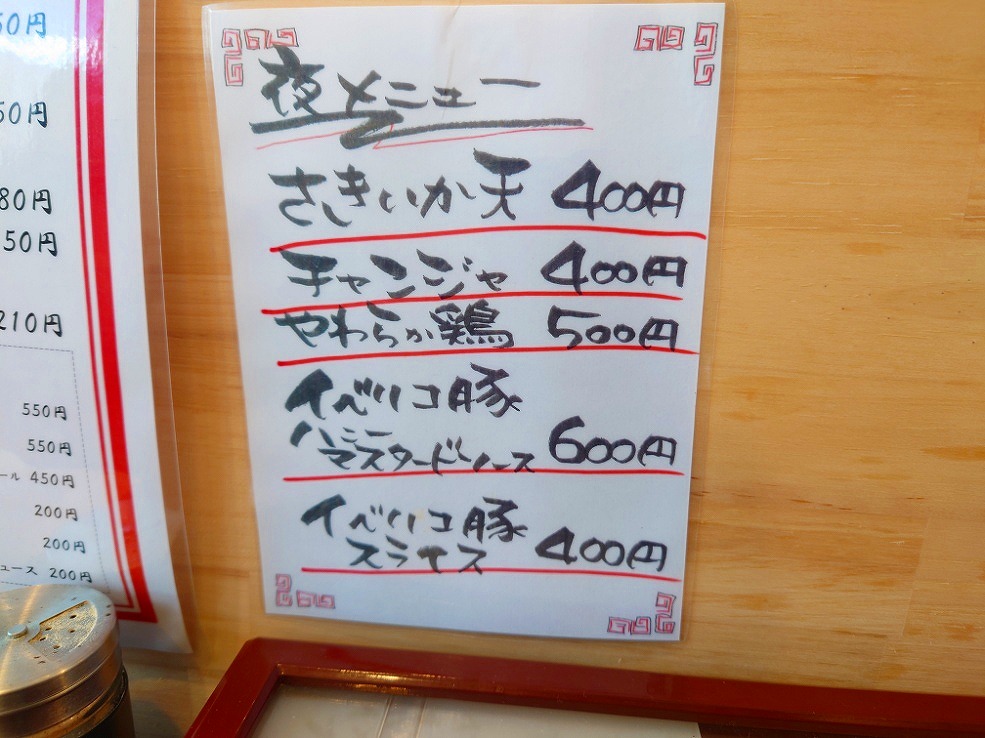 50円
50円
80円
50円
210円
550円
550円
ール 450円
200円
200円
ュース 200円
夜メニュー
さきいか天 400円
チャンジャ 400円
やわらか鶏 500円
イベリコ豚
ハニーマスタードソース 600円
イベリコ豚
スライス 400円